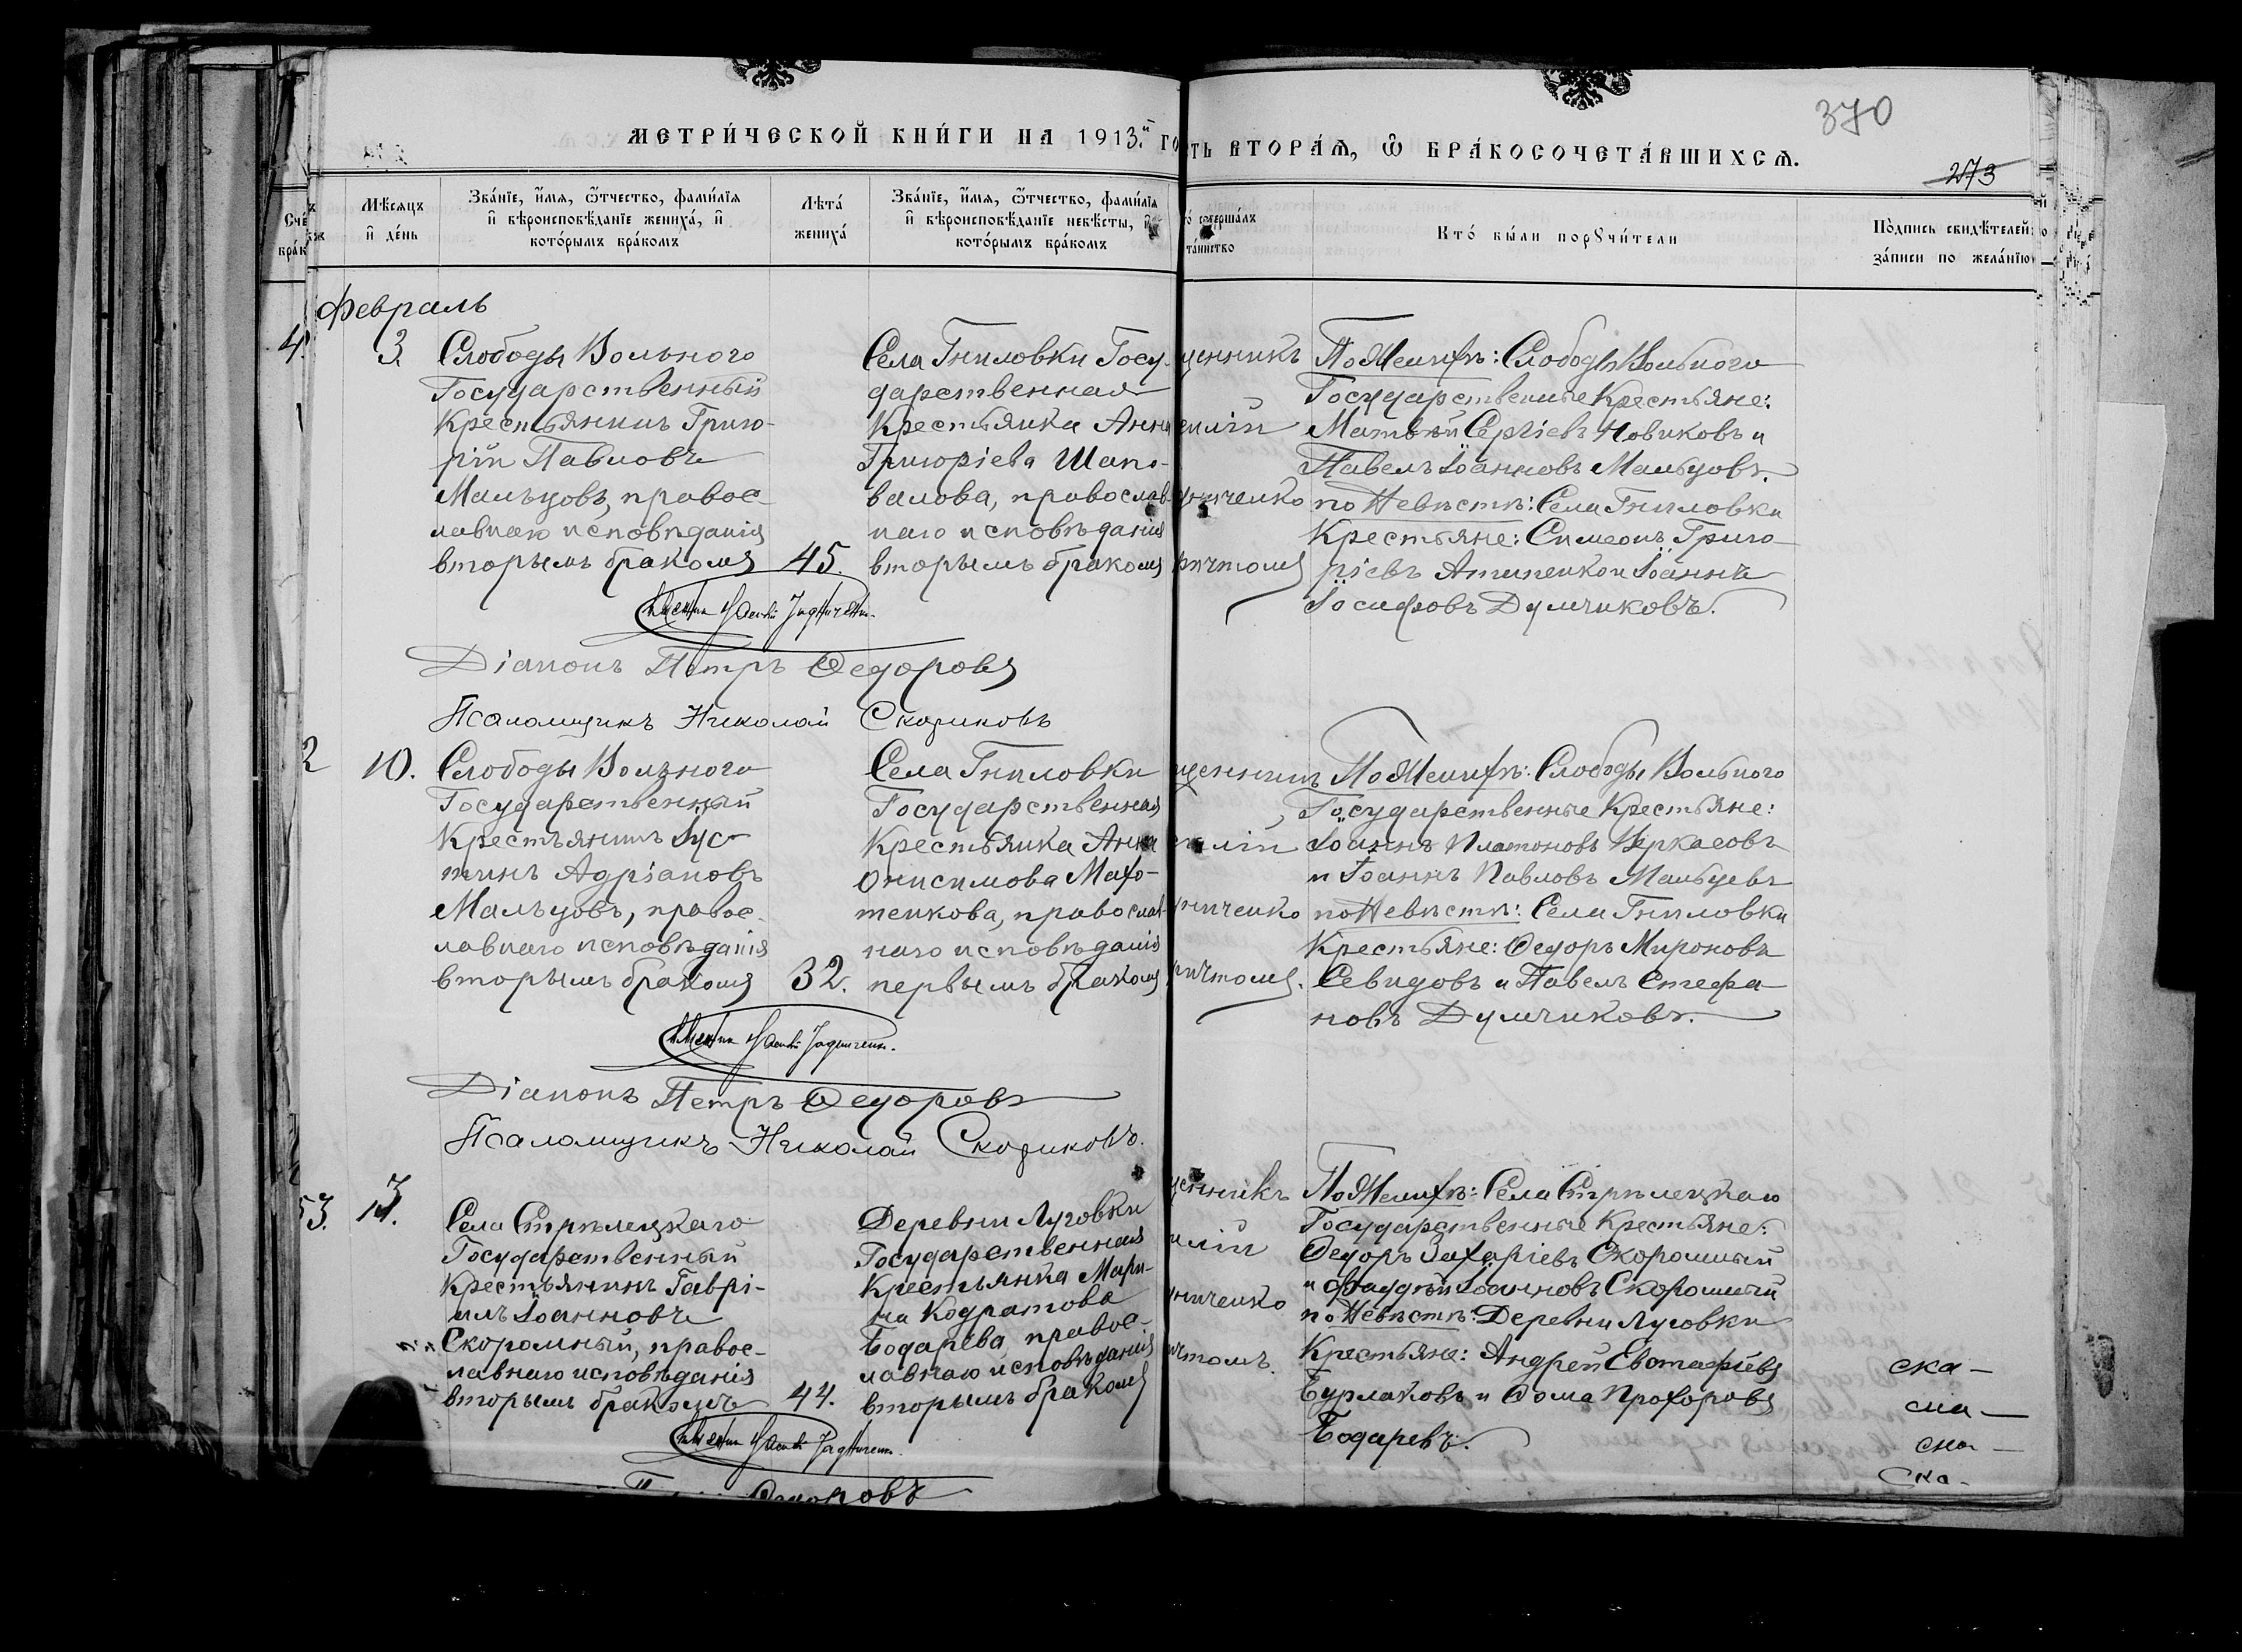 МЕТРИ́ЧЕСКОЙ КНИ́ГИ НА 1913.й ГО
ТЬ ВТОРА́Ѧ, Ѡ БРА́КОСОЧЕТА́ВШИХСѦ.
370
273
Сче́
бра́к
Мѣ́сяцъ
и҆ де́нь
Зва́нїе, и҆́мя, ѻ҆́тчество, фами́лїя
и҆ вѣроисповѣ́данїе жениха́, и҆
кото́рымъ бра́комъ
Лѣта́
жениха́
Зва́нїе, и҆́мя, ѻ҆́тчество, фами́лїя
и҆ вѣроисповѣ́данїе невѣ́сты, и҆
кото́рымъ бра́комъ
о́ соверша́лъ
та́инство
Кто́ бы́ли порꙋчи́тели
По́дпись свидѣ́телей
за́писи по жела́нїю
Февраль
4.
3.
Слободы Вольного
Государственный
Крестьянинъ Григо-
рій Павловъ
Мальцовъ, правос-
лавнаго исповѣданія
вторымъ бракомъ
45.
Села Гниловки Госу-
дарственная
Крестьянка Анна
Григоріева Шапо-
валова, православ-
наго исповѣданія
вторымъ бракомъ
щенникъ
силій
дниченко
ричтомъ
По Женихѣ: Слободы Вольного
Государственные Крестьяне:
Матвѣй Сергіевъ Новиковъ и
Павелъ Іоанновъ Мальцовъ.
по Невѣстѣ: Села Гниловки
Крестьяне: Симеонъ Григо-
ріевъ Атипенко и Іоаннъ
Іосифовъ Думчиковъ.
Діаконъ Петръ Ѳедоровъ
Псаломщикъ Николай Скориковъ
2
10.
Слободы Вольного
Государственный
Крестьянинъ Іус-
тинъ Адріановъ
Мальцовъ, правос-
лавнаго исповѣданія
вторымъ бракомъ
32.
Села Гниловки
Государственная
Крестьянка Анна
Онисимова Махо-
тенкова, православ-
наго исповѣданія
первымъ бракомъ
щенникъ
силій
дниченко
ричтомъ.
По Женихѣ: Слободы Вольного
Государственные Крестьяне:
Іоаннъ Платоновъ Черкасовъ
и Іоаннъ Павловъ Мальцевъ
по Невѣстѣ: Села Гниловки
Крестьяне: Ѳедоръ Мироновъ
Севидовъ и Павелъ Стефа-
новъ Думчиковъ.
Діаконъ Петръ Ѳедоровъ
Псаломщикъ Николай Скориковъ.
53.
Села Стрѣлецкаго
Государственный
Крестьянинъ Гаврі-
илъ Іоанновъ
Скоромный, правос-
лавнаго исповѣданія
вторымъ бракомъ
44.
Деревни Луговки
Государственная
Крестьянка Мари-
на Кодратова
Бодарева, правос-
лавнаго исповѣданія
вторымъ бракомъ
щенникъ
илій
дниченко
чтомъ.
По Женихѣ: Села Стрѣлецкаго
Государственные Крестьяне:
Ѳедоръ Захаріевъ Скоромный
и Фаддѣй Іоанновъ Скоромный
по Невѣстѣ: Деревни Луговки
Крестьяне: Андрей Евстафіевъ
Бурлаковъ и Ѳома Прохоровъ
Бодаревъ.
Ѳедоровъ
ска-
ска-